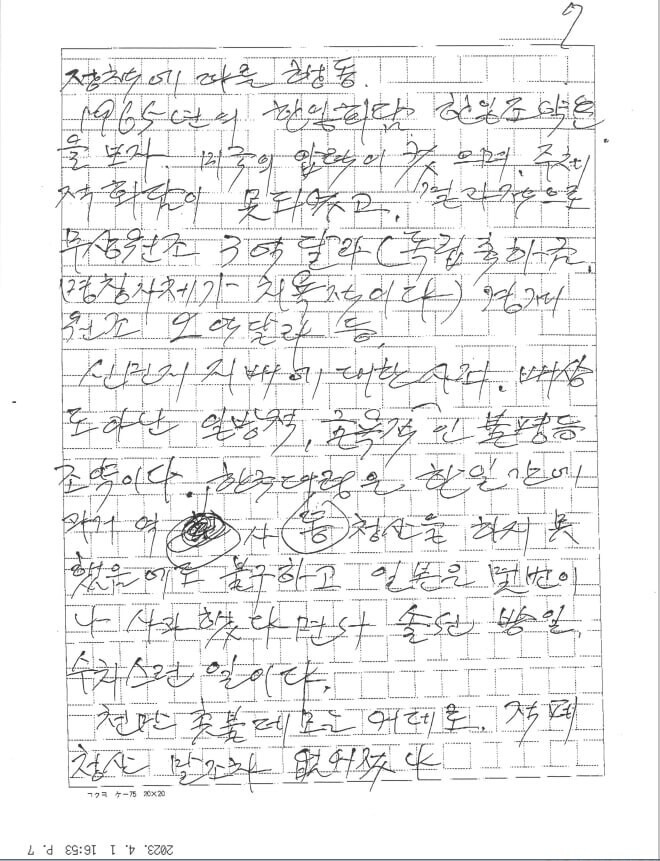 7
정치적에 따른 행동.
1965년의 한일회담, 한일조약은
을 보자. 미국의 압력이 컷으며, 주체
적 회담이 못되었고. 결과적으로
무상원조 3억 달라(독립축하금,
명칭자체가 치욕적이다) 경제
원조 2억달라 등,
식민지 지배에 대한 사과. 배상
도 아닌 일방적, 굴욕적인 불평등
조약이다. 한국대통령은 한일간에
과거 역사 등 청산을 하지 못
했음에도 불구하고 일본은 몇번이
나 사과했다면서 술판 방일,
수치스런 일이다.
천만 촛불데모는 어데로. 적폐
청산 말조차 없어졌다
コクヨ ケ-75 20×20
2023. 4. 1 16:53 P. 7